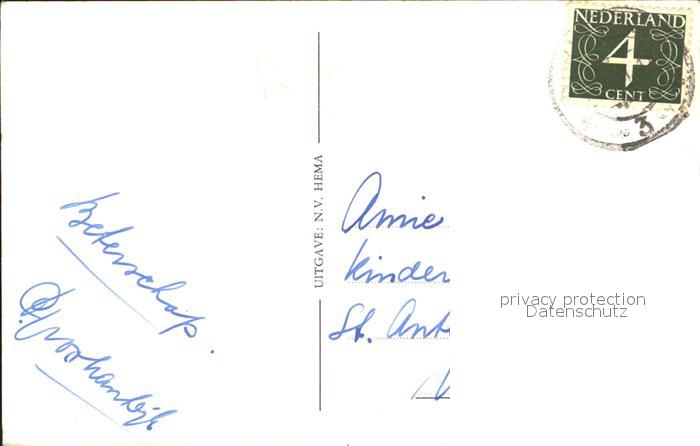 NEDERLAND
4
CENT
3
UITGAVE: N.V. HEMA
Beterschap.
Amie
kinder
St. Ant
privacy protection
Datenschutz